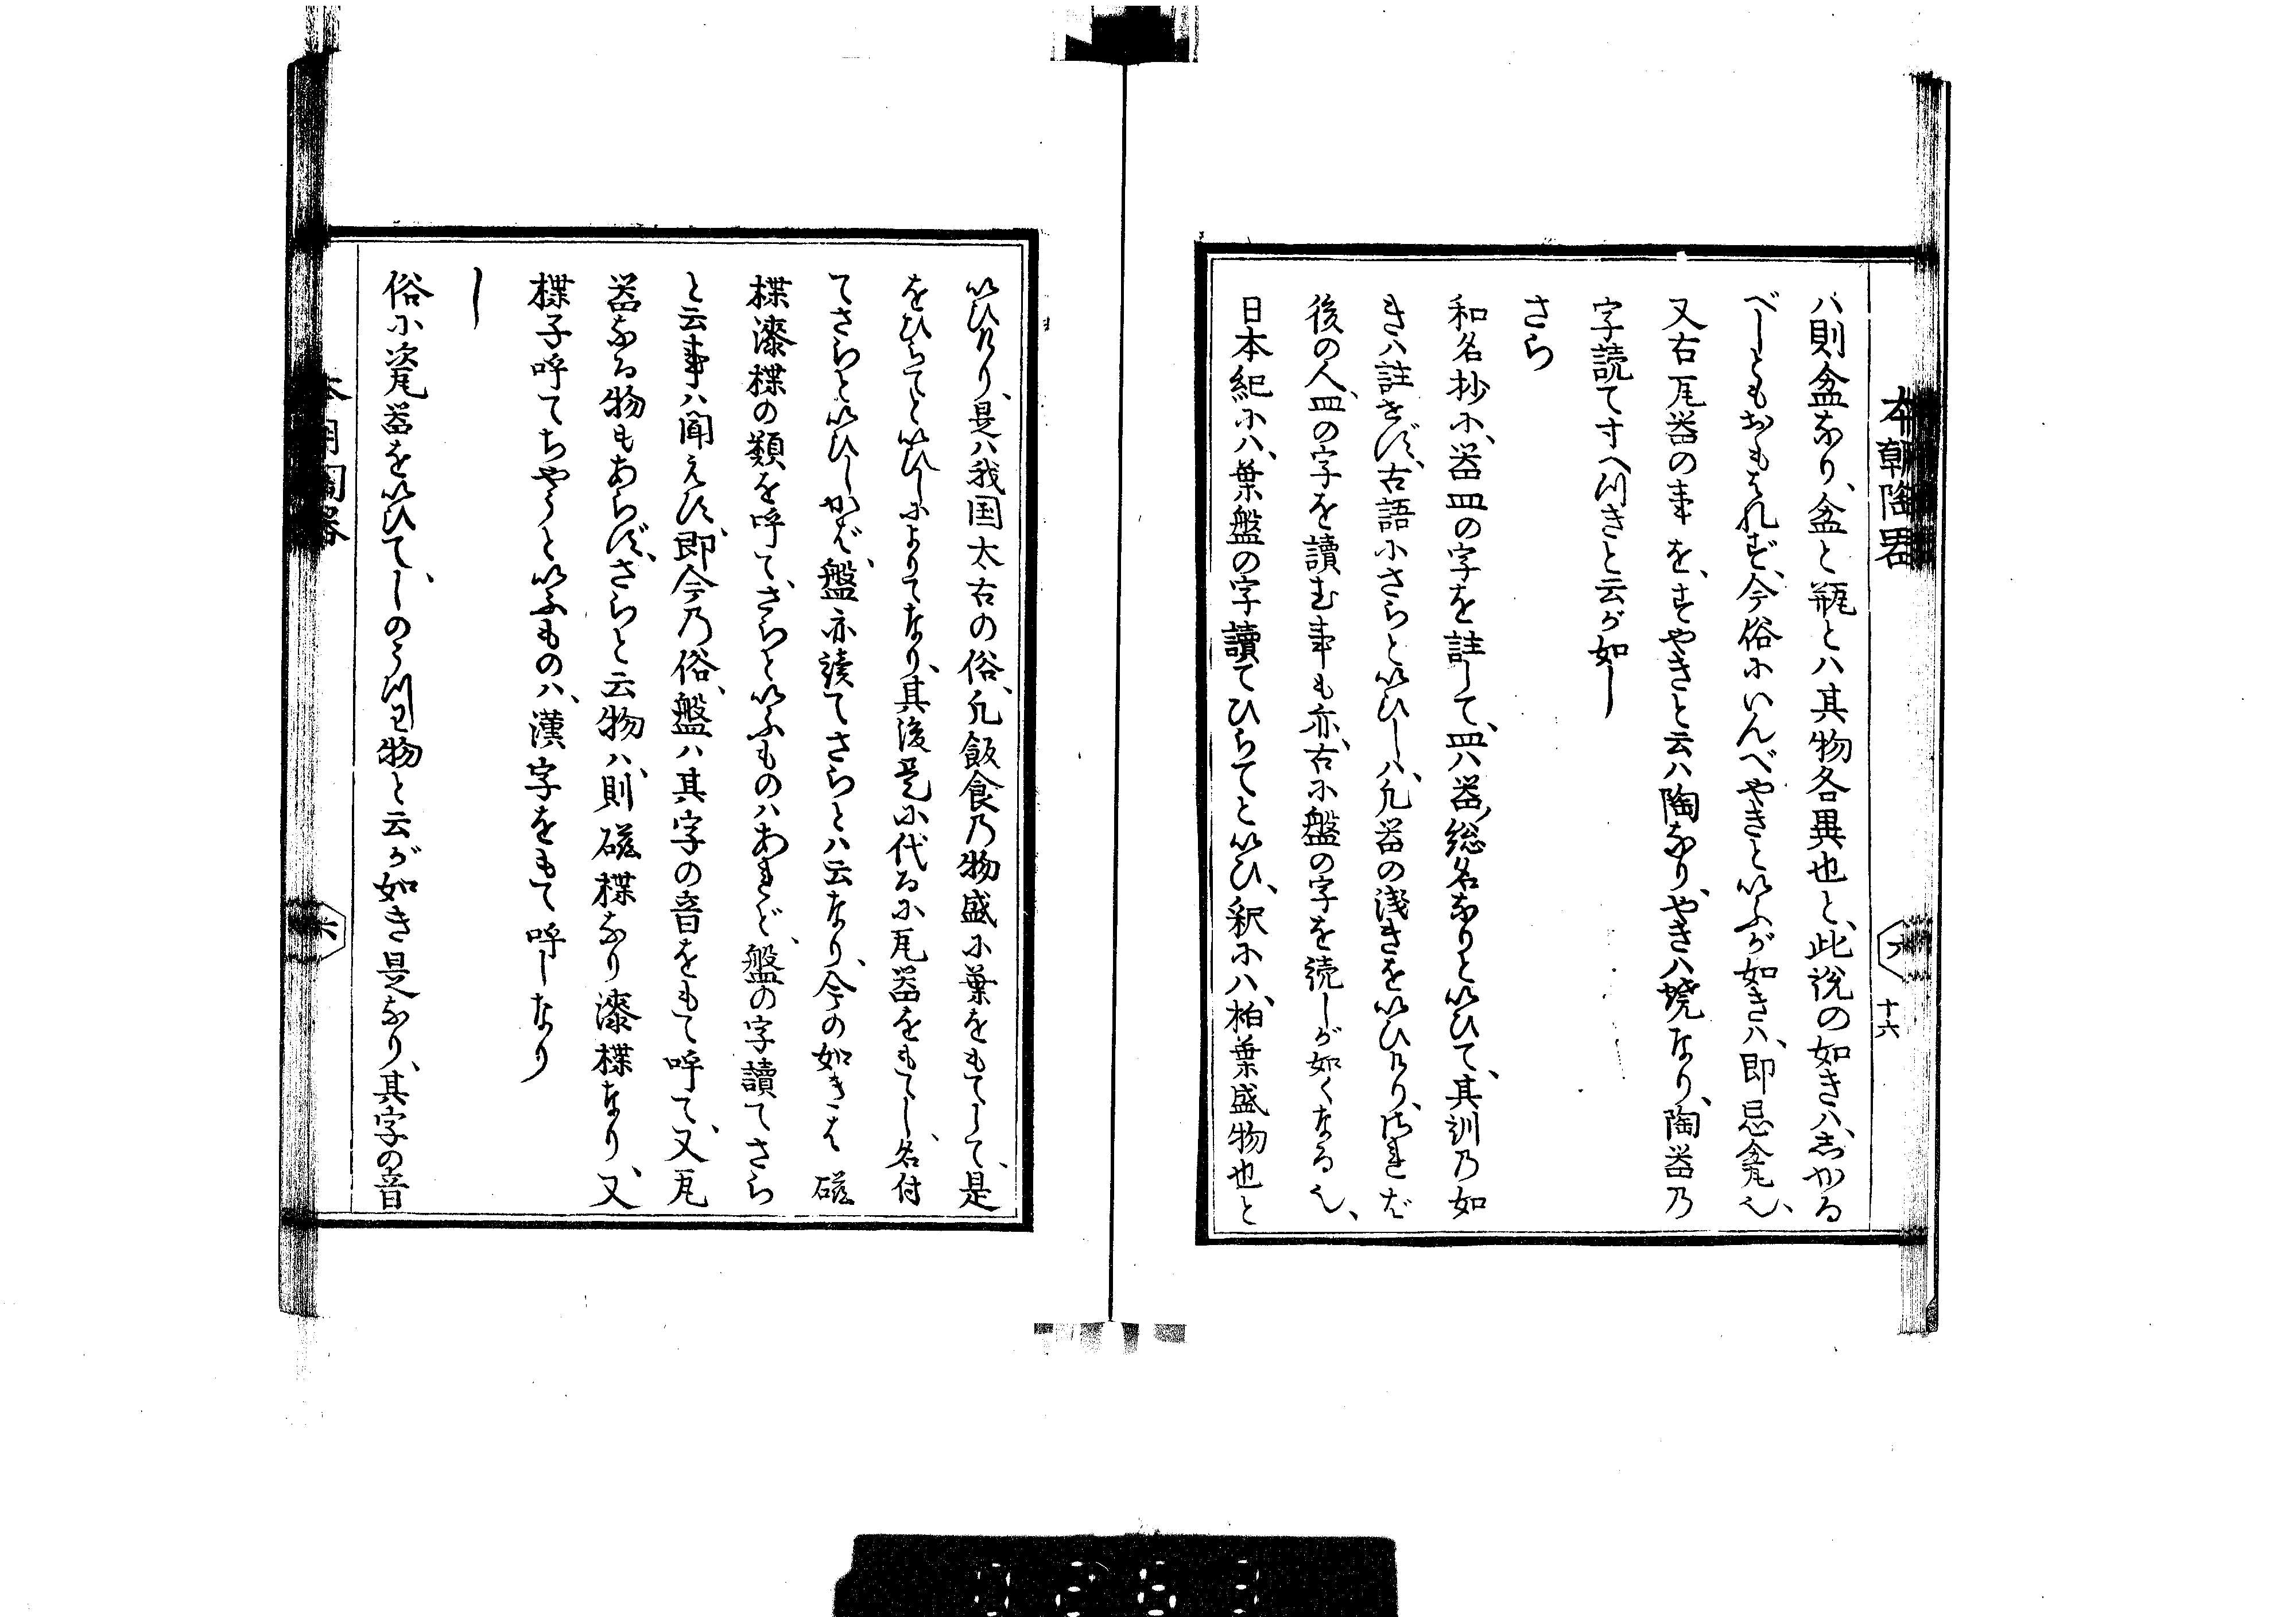 本朝陶器
六
十六
ハ則盆なり、盆と瓶とハ其物各異也と、此説の如きハ、志かる
べしともおもはれず、今俗にいんべやきといふが如きハ、即忌瓮也、
又右瓦器の事を、すやきと云ハ陶なり、やきハ焼なり、陶器乃
字読てすへ川きと云が如し
さら
和名抄に、器皿の字を註して、皿ハ器総名なりといひて、其訓乃如
きハ註せず、古語にさらといひしハ、凡器の浅きをいひけり、されば
後の人、皿の字を讀む事も亦、右に盤の字を読しが如くなる也、
日本紀にハ、葉盤の字讀てひらてといひ、釈にハ、柏葉盛物也と
いひけり、是ハ我国太古の俗、凡飯食乃物盛に葉をもてして、是
をひらてといひしによりてなり、其後是に代るに瓦器をもてし、名付
てさらといひしかば、盤亦読てさらとハ云なり、今の如きは磁
楪漆楪の類を呼て、さらといふものハあれど、盤の字讀てさら
と云事ハ聞えず、即今乃俗、盤ハ其字の音をもて呼て、又瓦
器なる物もあらず、さらと云物ハ、則磁楪なり漆楪なり、又
楪子呼てちやうといふものハ、漢字をもて呼しなり
し
俗に瓷器をいひて、しのう川わ物と云が如き是なり、其字の音
本朝陶器
六